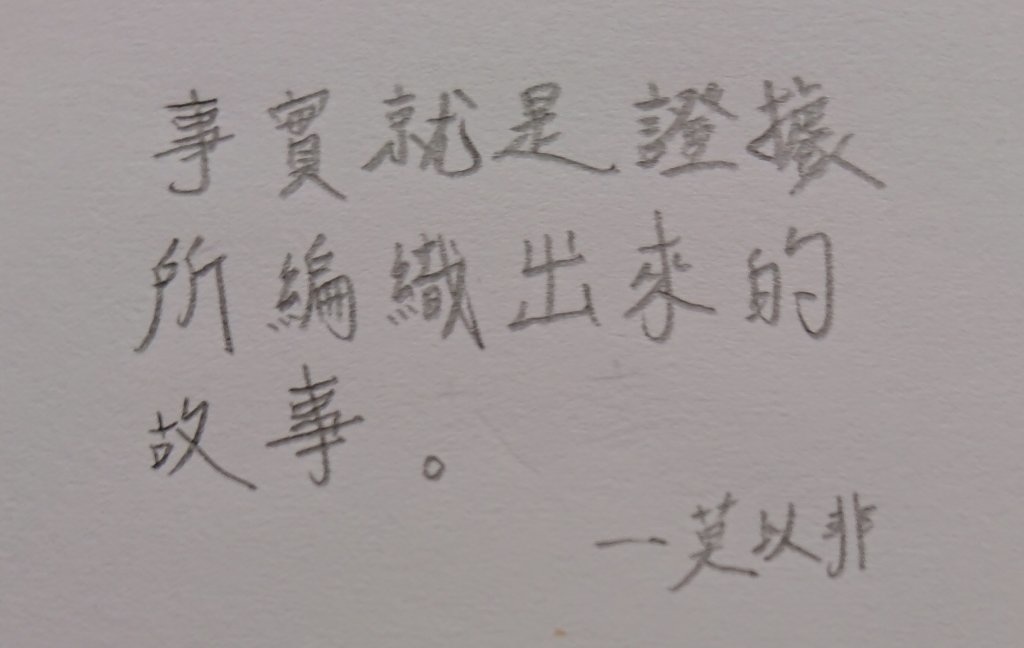 事實就是證據
所編織出來的
故事。
—莫以非